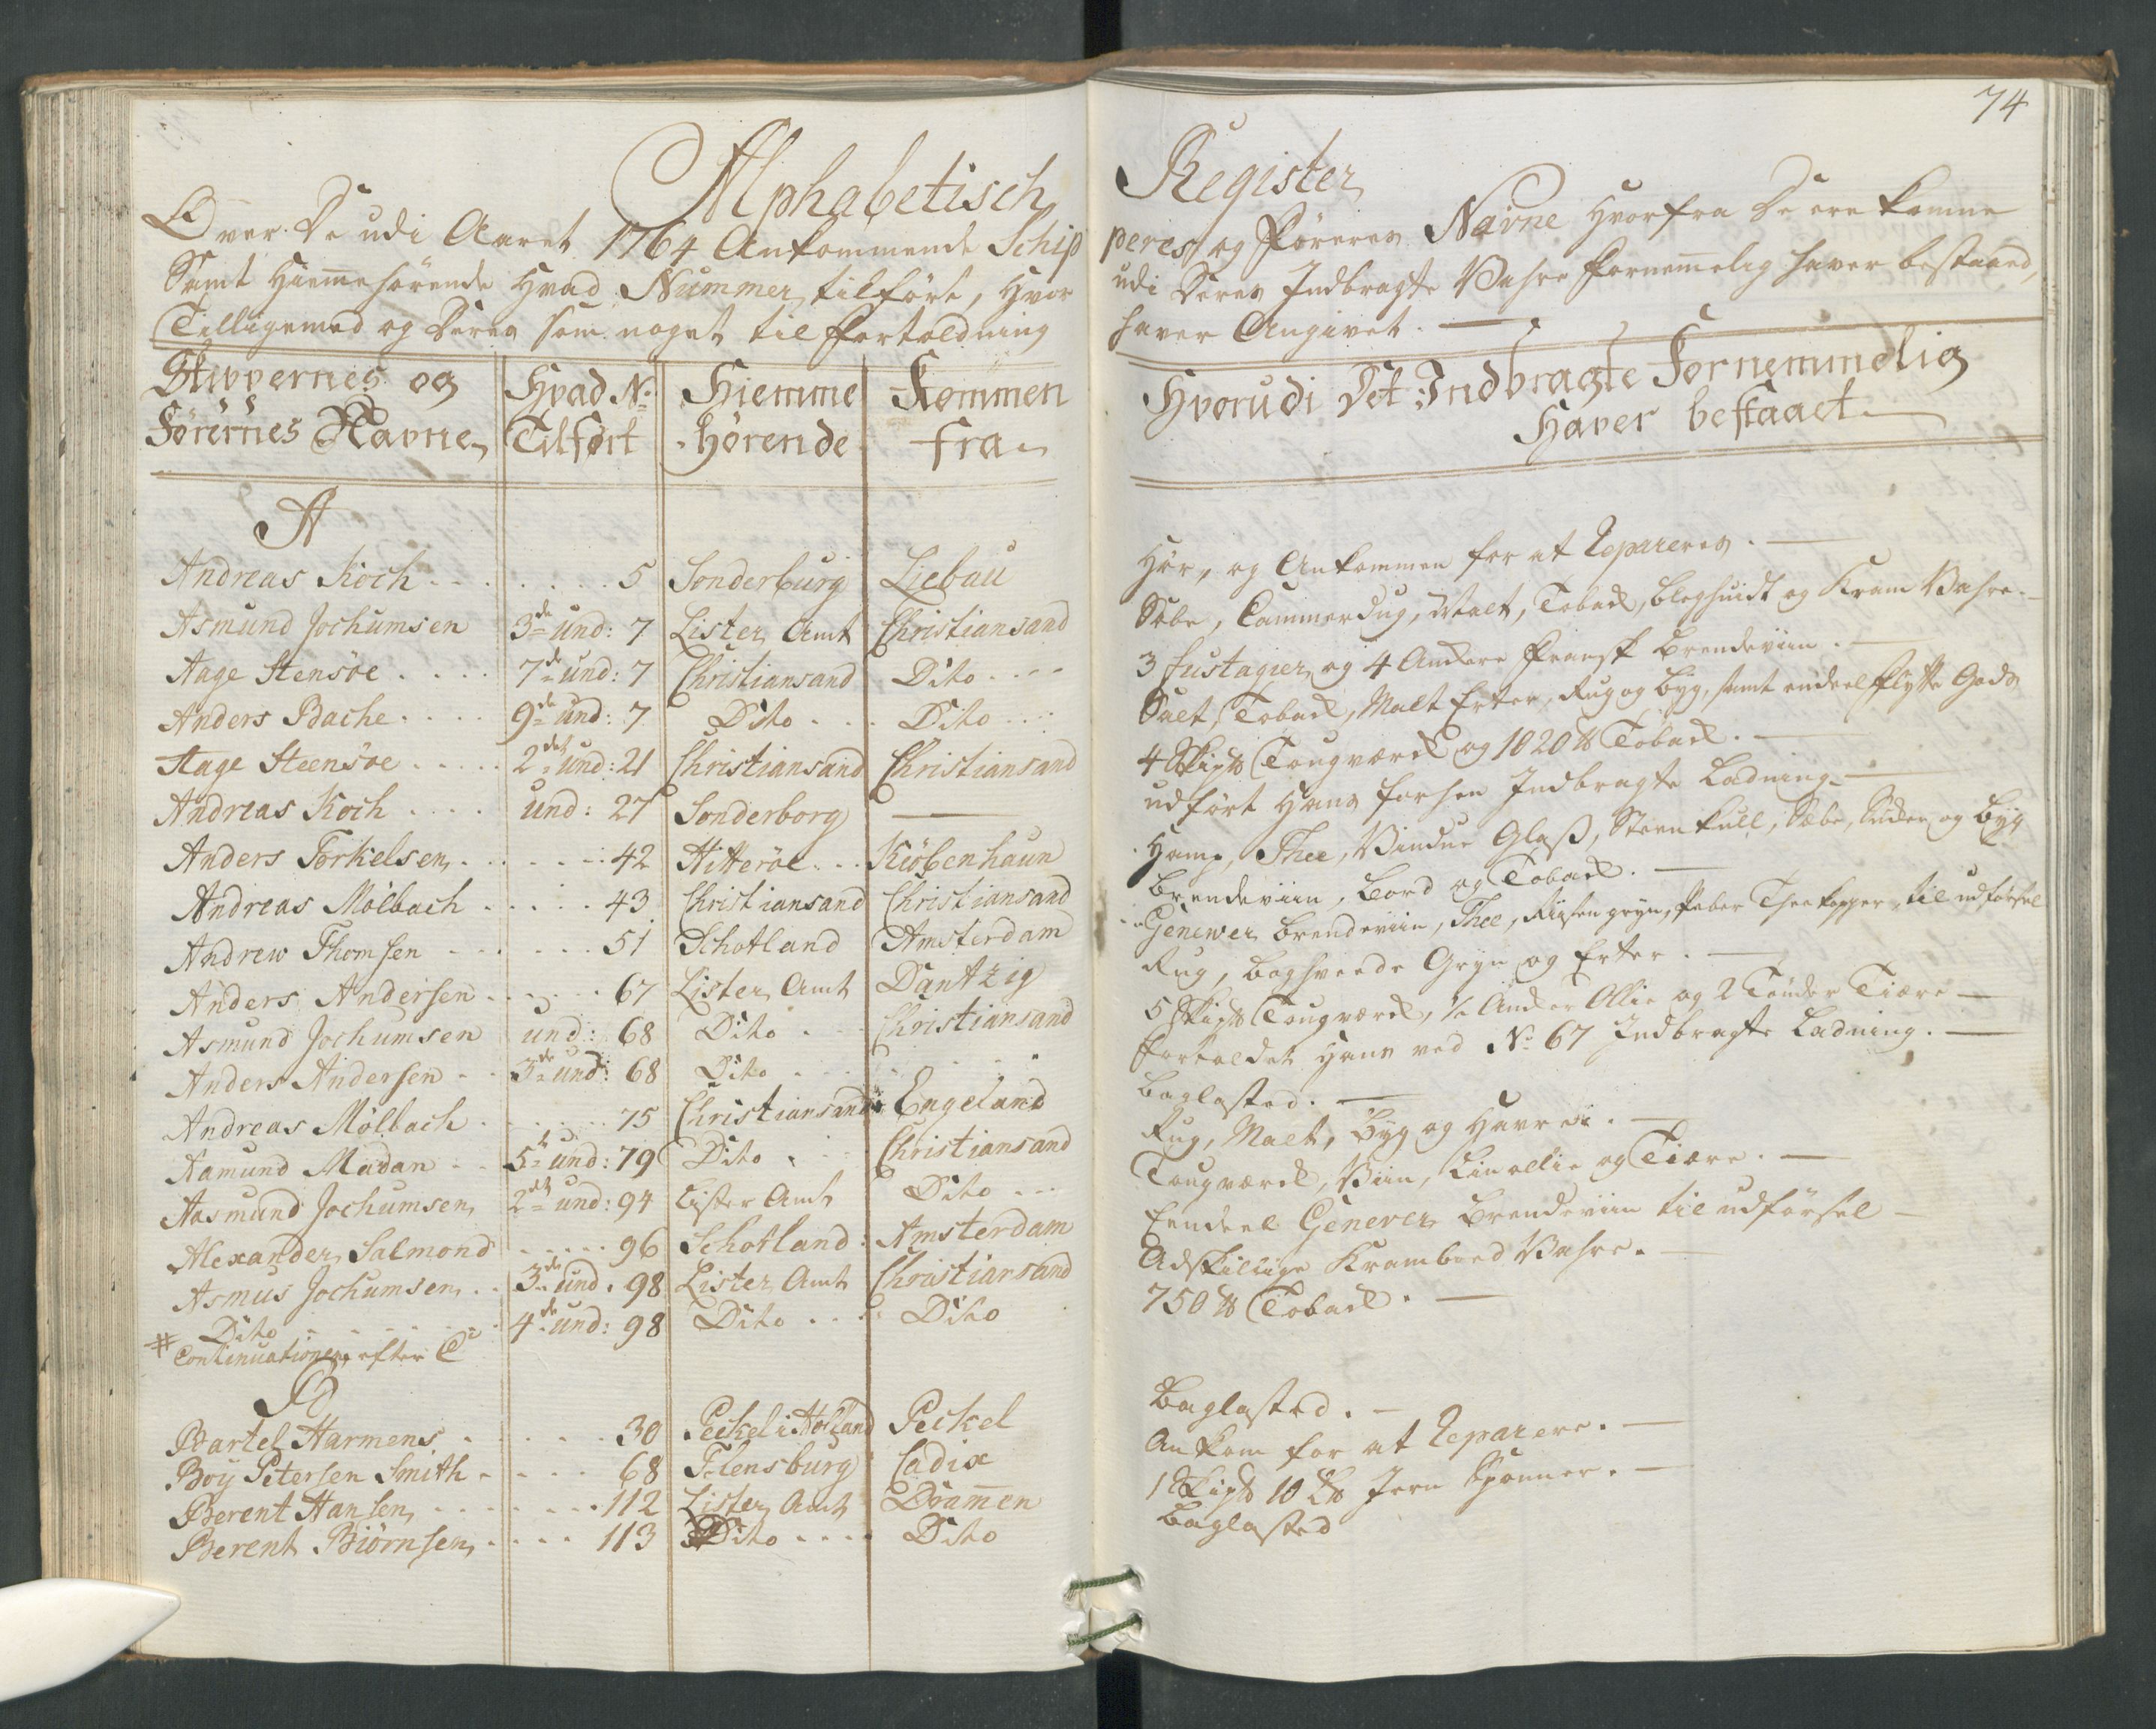 74
Alphabetisch Register
Over De udi Aaret 1764 Ankommende Schipperes og Föreres Navne Hvorfra De ere komne
Samt Hiemmehörende Hvad Nummer tilfört, Hvor udi Deres Indbragte Vahre fornemmelig haver bestaaed,
Tilligemed og Deres som noget til Fortoldning haver Angivet.
Skippernes og Förernes Navne | Hvad No Tilfört | Hiemme hörende | Kommen fra | Hvorudi Det Indbragte Fornemmelig Haver bestaaet
A
Andreas Koch . . . . . 5 Sonderburg Liebau Hör, og Ankommen for at Repareres.
Asmund Jochumsen 3de und: 7 Lister Amt Christiansand Sæbe, Cammerdug, Malt, Toback, bleghvidt og Kram Vahre.
Aage Stensöe . . . . 7de und: 7 Christiansand Dito . . . 3 fustagier og 4 Ankere Fransk Brendeviin.
Anders Bache . . . . 9de und: 7 Dito . . . Dito . . . Salt, Toback, Malt Erter, Rug og Byg, samt endeel flytte Gods
Aage Steensöe . . . . . 2det und: 21 Christiansand Christiansand 4 Skip℔ Tougværck og 1020 ℔ Toback.
Andreas Koch . . . . und: 27 Sonderborg — udfört Hans forhen Indbragte Ladning.
Anders Torkelsen . . . . . . 42 Hitteröe . . . Kiöbenhaun Hamp, Thee, Vindue Glaß, Steenkull, Sæbe, Sæder og Byg
Andreas Mölbach . . . . . 43 Christiansand Christiansand Brendeviin, Bord og Toback.
Andrew Thomsen . . . . . 51 Schotland Amsterdam Genever Brendeviin, Thee, Riisengryn, Peber Theekopper, til udförsel
Anders Andersen . . . . . 67 Lister Amt Dantzig Rug, Boghveede Gryn og Erter.
Asmund Jochumsen und: 68 Dito . . . Christiansand 5 Skip℔ Tougværck, ½ Ancker Ollie og 2 Tönder Tiære
Anders Andersen . . 3de und: 68 Dito . . . " Fortoldet Hans ved No 67 Indbragte Ladning.
Andreas Mölbach . . . . . 75 Christiansand Engeland Baglasted.
Aamund Madan . . 5te und: 79 Dito . . . Christiansand Rug, Malt, Byg og Havre.
Aasmund Jochumsen 2det und: 94 Lister Amt Dito . . . Tougværck, Viin, Linollie og Tiære.
Alexander Salmond . . . . . 96 Schotland Amsterdam Eendeel Genever Brendeviin til udförsel
Asmus Jochumsen . . 3de und: 98 Lister Amt Christiansand Adskillige Kramboed Vahre.
Dito . . . . . 4de und: 98 Dito . . . Dito 750 ℔ Toback.
# Continuationen efter C
B
Bartel Harmens . . . . . 30 Peekel i Holland Peckel Baglasted.
Boÿ Petersen Smith . . . . 68 Flensburg Cadix Ankom for at Reparere.
Berent Hansen . . . . . 112 Lister Amt Drammen 1 Skip℔ 10 L℔ Jern Spönner.
Berent Biörnsen . . . . 113 Dito . . . . Dito Baglasted